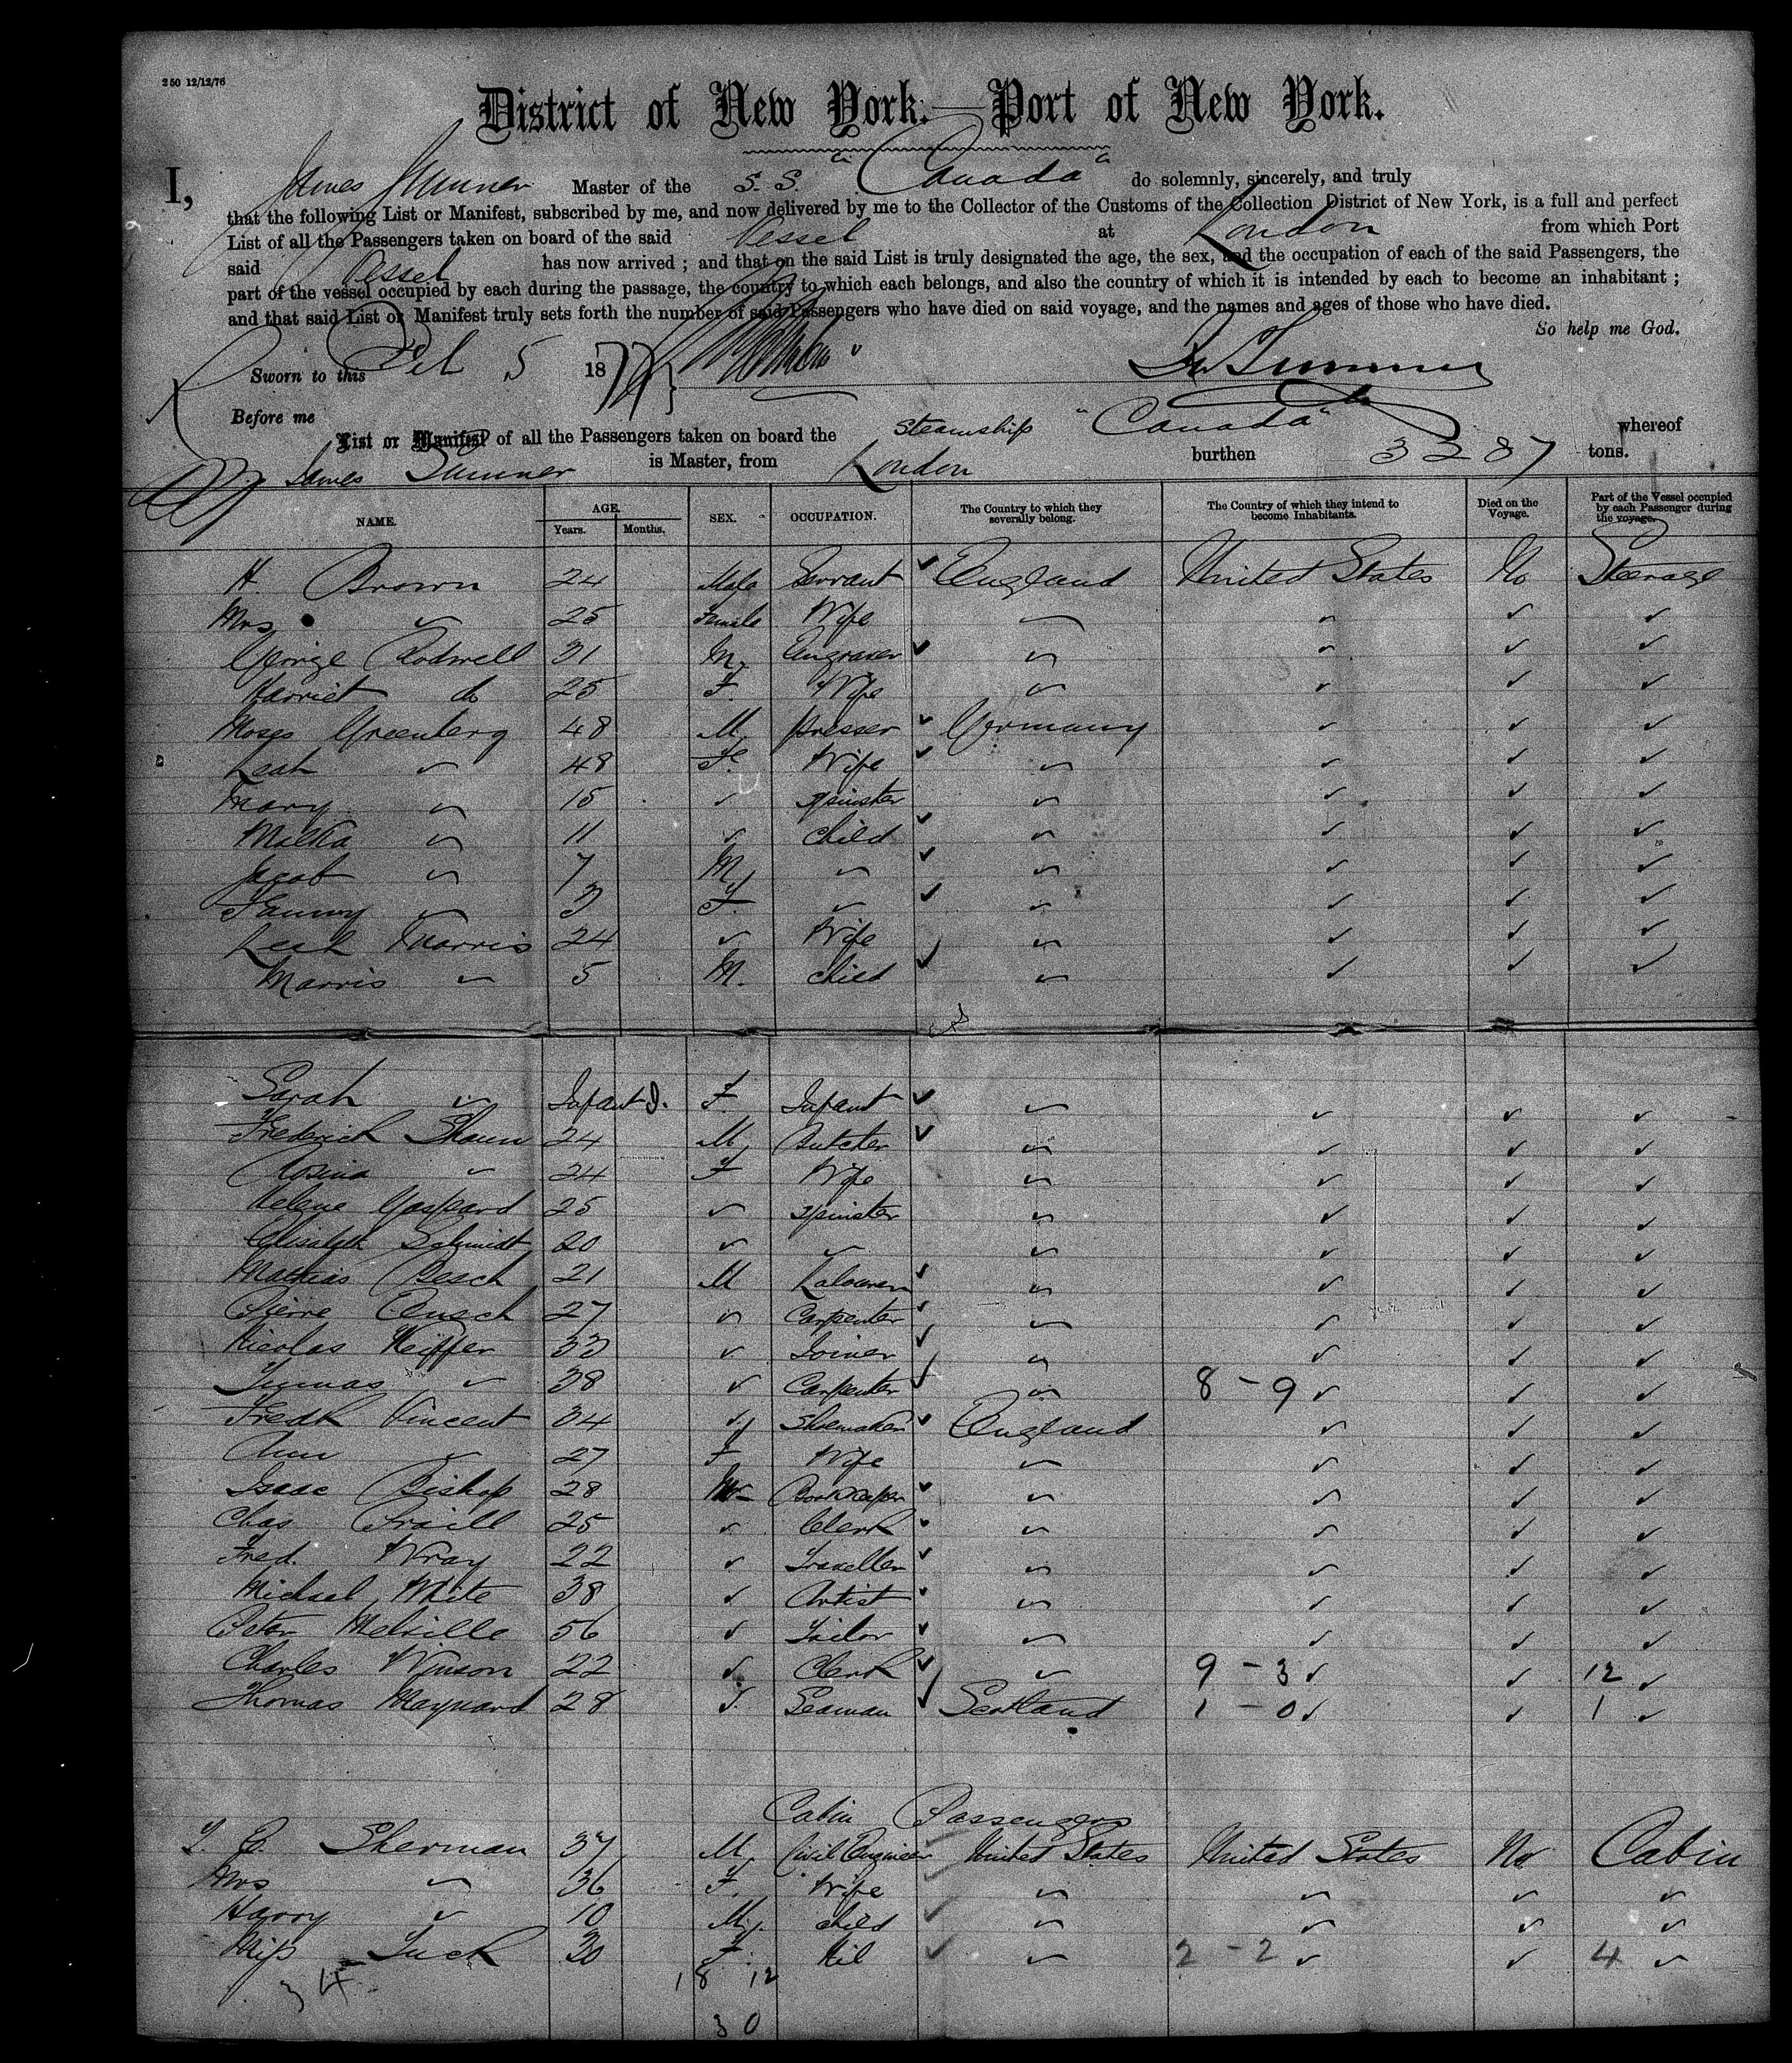 250 12/12/76
District of New York.—Port of New York.
I, James Sumner Master of the S. S. "Canada" do solemnly, sincerely, and truly
that the following List or Manifest, subscribed by me, and now delivered by me to the Collector of the Customs of the Collection District of New York, is a full and perfect
List of all the Passengers taken on board of the said Vessel at London from which Port
said Vessel has now arrived ; and that on the said List is truly designated the age, the sex, and the occupation of each of the said Passengers, the
part of the vessel occupied by each during the passage, the country to which each belongs, and also the country of which it is intended by each to become an inhabitant ;
and that said List or Manifest truly sets forth the number of said Passengers who have died on said voyage, and the names and ages of those who have died.
So help me God.
Sworn to this Feb 5 1877 Jas Sumner
Before me
List or Manifest of all the Passengers taken on board the Steamship "Canada" whereof
James Sumner is Master, from London burthen 3287 tons.
NAME. AGE. Years. Months. SEX. OCCUPATION. The Country to which they severally belong. The Country of which they intend to become Inhabitants. Died on the Voyage. Part of the Vessel occupied by each Passenger during the voyage.
H. Brown 24 Male Servant England United States No Steerage
Mrs " 25 Female Wife " " " "
George Rodwell 31 M. Engraver " " " "
Harriet do 25 F. Wife " " " "
Moses Greenberg 48 M. presser Germany " " "
Leah " 48 Fe Wife " " " "
Mary " 15 " Spinster " " " "
Malka " 11 " Child " " " "
Jacob " 7 M " " " " "
Fanny " 3 F. " " " " "
Leah Morris 24 " Wife " " " "
Morris " 5 M. child " " " "
Sarah " Infant F. Infant " " " "
Frederick Shaun 24 M. Butcher " " " "
Rosina " 24 F Wife " " " "
Helene Gaspard 25 " Spinster " " " "
Elisabeth Schmidt 20 " " " " " "
Mathias Besch 21 M Labourer " " " "
Pierre 27 " Carpenter " " " "
Nicolas Keiffer 33 " Joiner " " " "
" 38 " Carpenter " 8 - 9 " " "
Fredk Vincent 34 " Shoemaker England " " "
Ann " 27 F Wife " " " "
Isaac Bishop 28 M Bookkeeper " " " "
Chas Praill 25 " Clerk " " " "
Fred. Wray 22 " Traveller " " " "
Michael White 38 " Artist " " " "
Peter Melville 56 " Tailor " " " "
Charles Winson 22 " Clerk " 9 - 3 " " 12 "
Thomas Maynard 28 " Seaman Scotland 1 - 0 " " 1 "
Cabin Passengers
Sherman 37 M. Civil Engineer United States United States No Cabin
Mrs " 36 F. Wife " " " "
Harry " 10 M. child " " " "
Miss Tuck 30 F. Nil " 2 - 2 " " 4 "
34
18 12
30